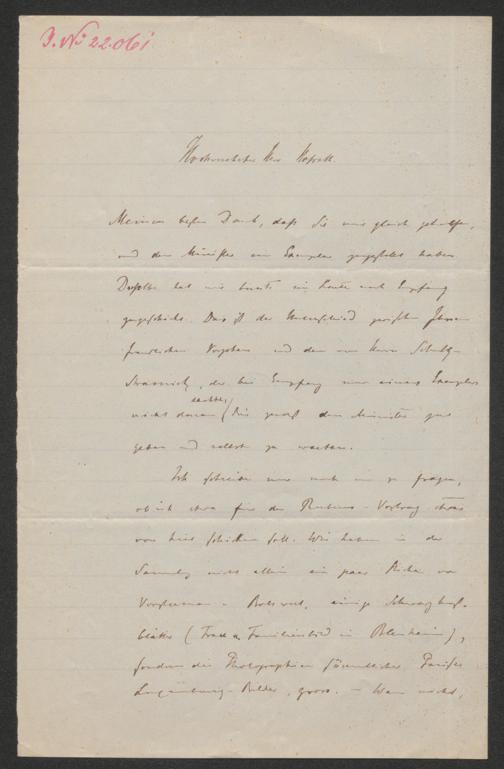 J. № 22.061
Hochverehrter Herr Hofrath.
Meinen besten Dank, daß Sie mir gleich geholfen,
und dem Minister ein Exemplar zugestellt haben
Derselbe hat mir bereits ein Leute nach Empfang
geschickt. Das ist der Unterschied zwischen Ihrem
freundlichen Vorgehen und dem von Herrn Schultz-
der bei Empfang nur eines Exemplars
nicht daran dachte, dies zuerst dem Minister zu
geben und selbst zu warten.
Ich schreibe nur noch um zu fragen,
ob ich etwa für den Rubens-Vortrag etwas
von hier schicken soll. Wir haben in der
Sammlung nicht allein ein paar Stiche von
Vorsterman u. Bolswert, einige Schwarzkunst-
blätter (Frau u. Familienbild in Blenheim),
sondern die Photographien sämmtlicher Pariser
Luxembourg-Bilder, gross. – Wenn nicht,